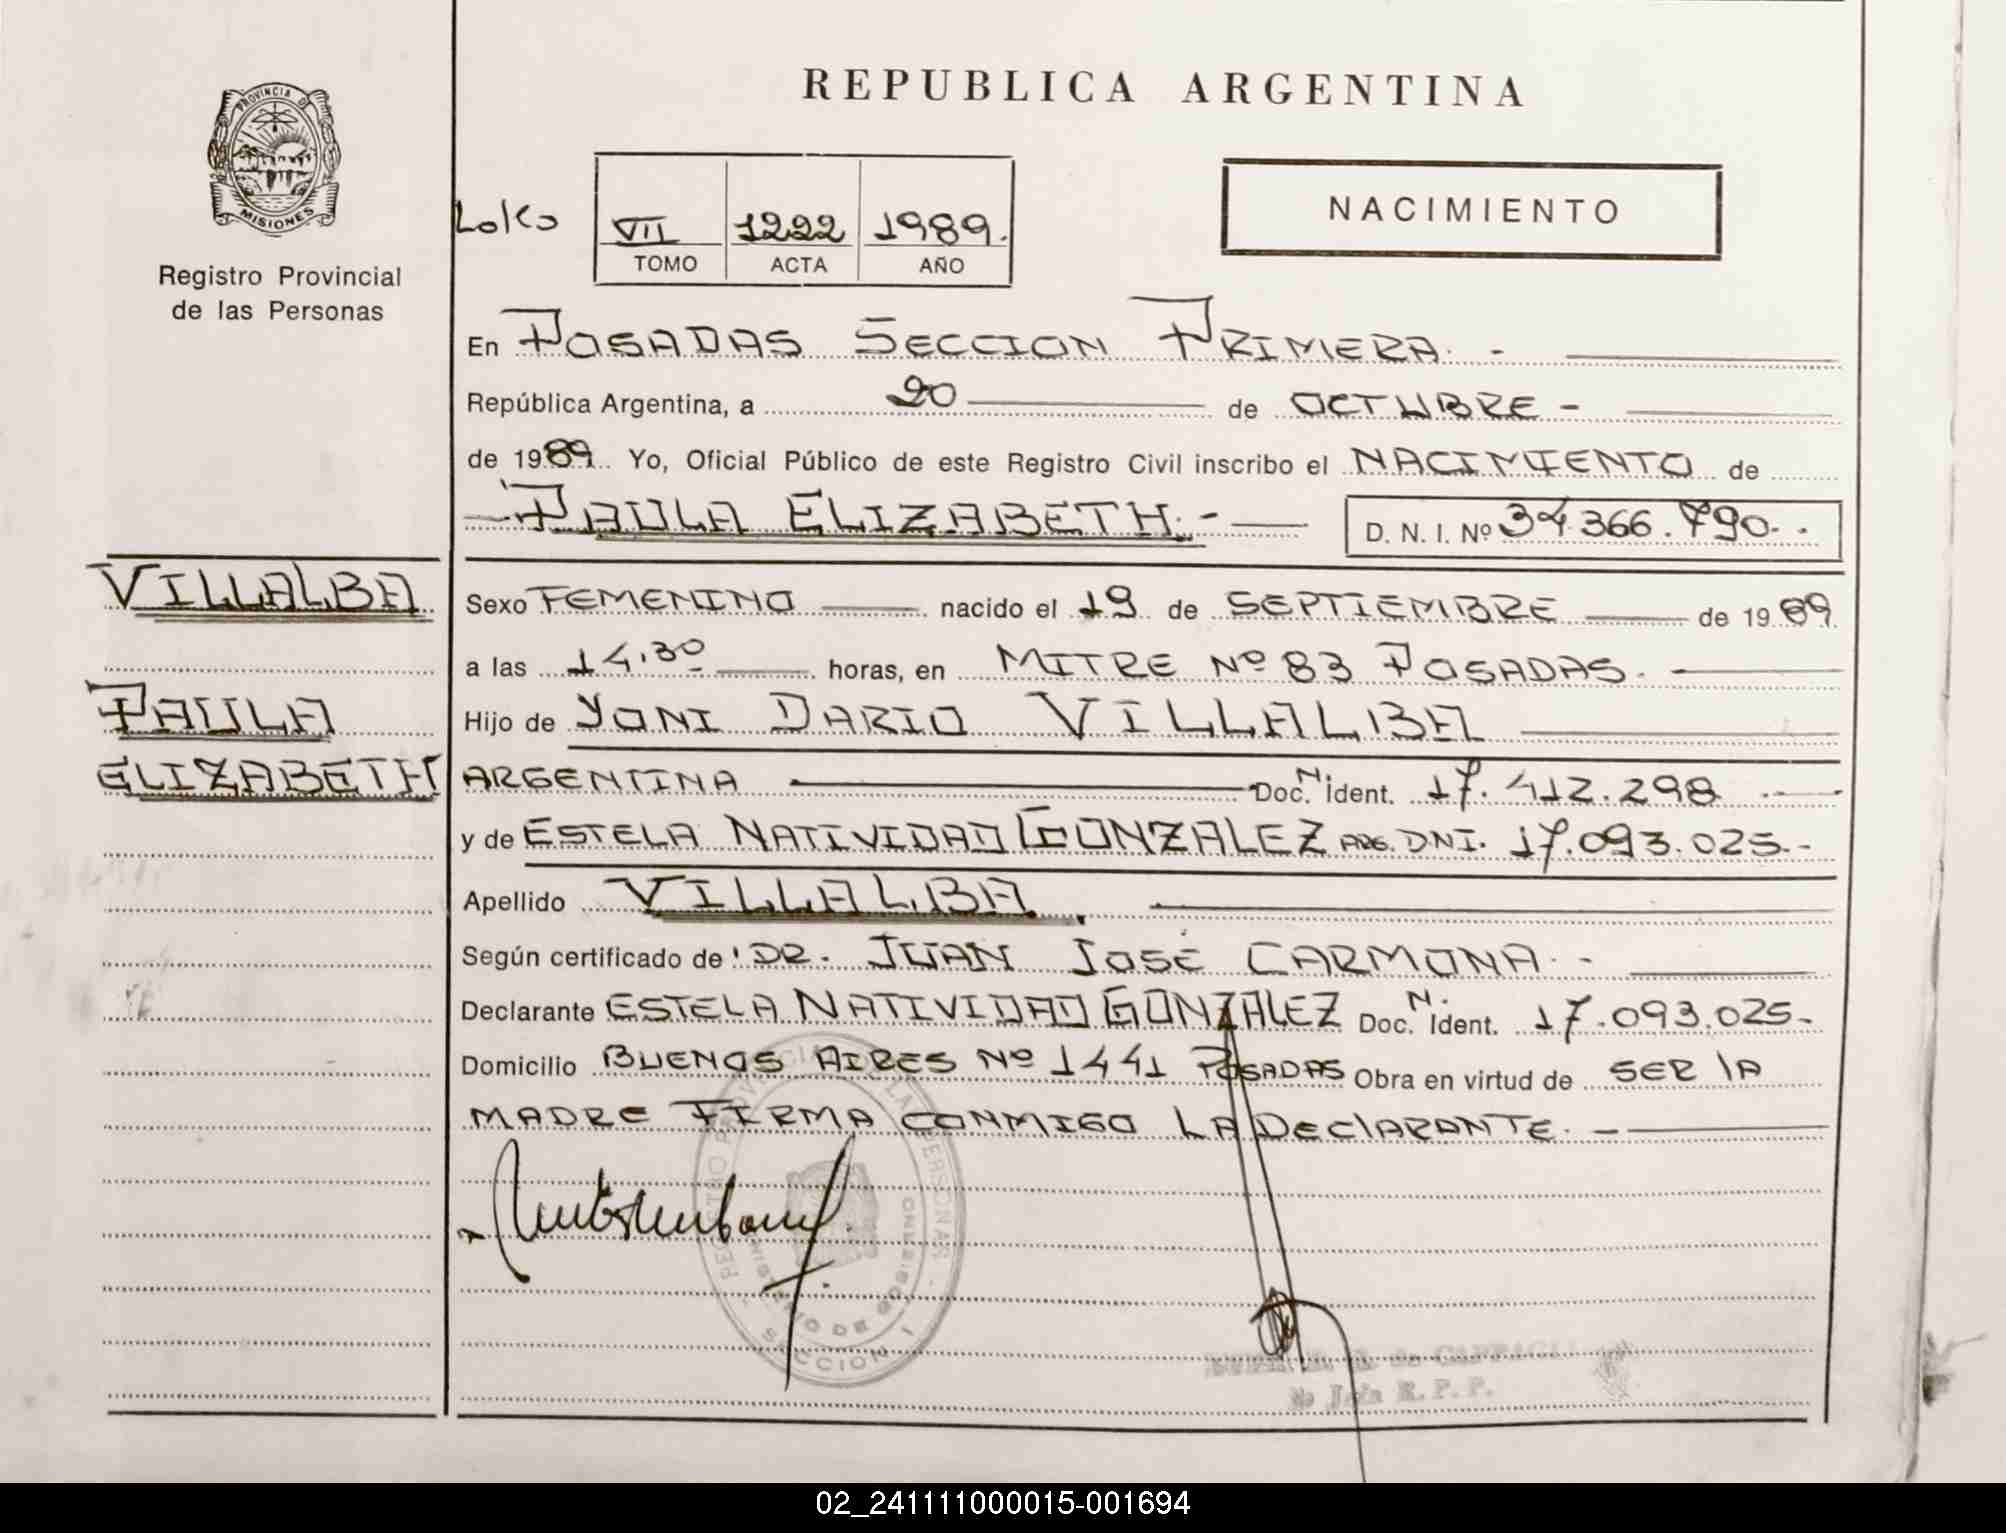 REPUBLICA ARGENTINA
PROVINCIA DE
MISIONES
Registro Provincial
de las Personas
VII 1222 1989.
TOMO ACTA AÑO
NACIMIENTO
En POSADAS SECCION PRIMERA. -
República Argentina, a 20 de OCTUBRE -
de 1989. Yo, Oficial Público de este Registro Civil inscribo el NACIMIENTO de
- PAULA ELIZABETH. - D. N. I. Nº 34.366.790.
VILLALBA
PAULA
ELIZABETH
Sexo FEMENINO nacido el 19 de SEPTIEMBRE de 1989
a las 14.30 horas, en MITRE Nº 83 POSADAS.
Hijo de YONI DARIO VILLALBA
ARGENTINA Doc. N. Ident. 17.412.298
y de ESTELA NATIVIDAD GONZALEZ ARG. DNI. 17.093.025.-
Apellido VILLALBA.
Según certificado de: DR. JUAN JOSÉ CARMONA. -
Declarante ESTELA NATIVIDAD GONZALEZ Doc. N. Ident. 17.093.025.
Domicilio BUENOS AIRES Nº 1441 POSADAS Obra en virtud de SER LA
MADRE FIRMA CONMIGO LA DECLARANTE. -
REGISTRO PROVINCIAL DE LAS PERSONAS
MINISTERIO DE GOBIERNO
SECCION 1
R. P. P.
02_241111000015-001694